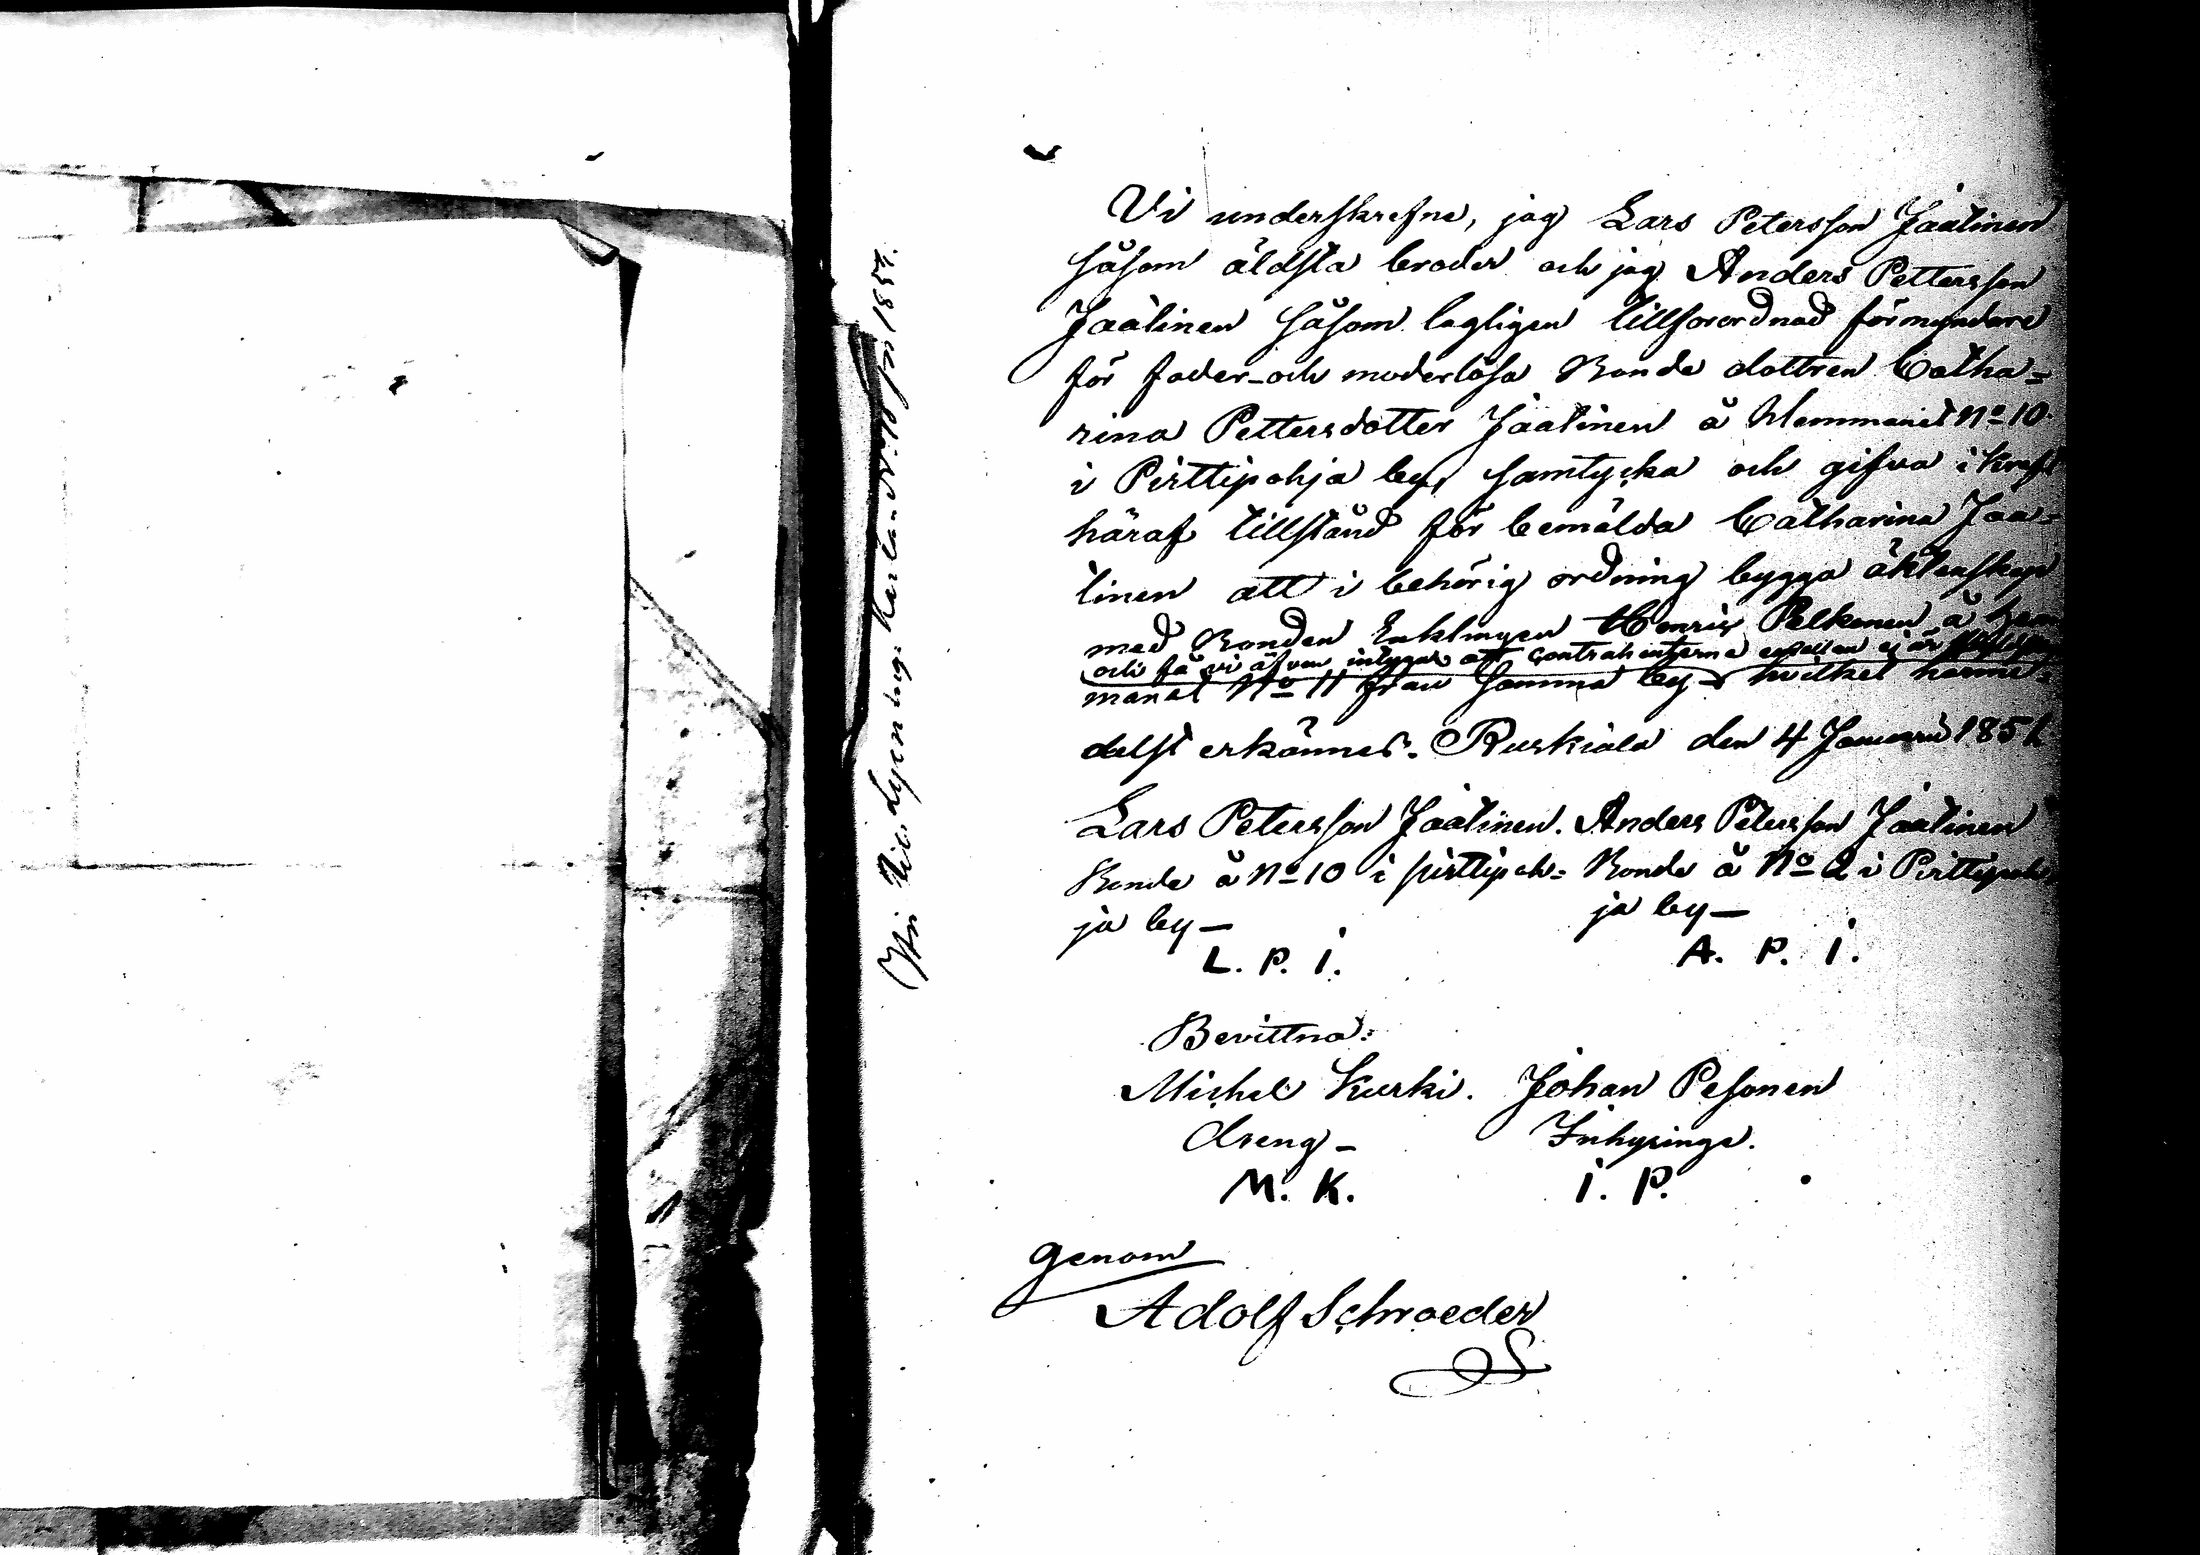 Vi underskrefne, jag Lars Petersson Jaatinen
såsom äldsta broder och jag Anders Pettersson
Jaatinen såsom lagligen tillforordnad förmyndare
för fader- och moderlösa Bonde dottren Catha=
rina Pettersdotter Jaatinen å Hemmanet No 10
i Pirttipohja by, samtycka och gifva i kraft
häraf tillstånd för bemälda Catharina Jaa=
tinen att i behörig ordning bygga äktenskap
med Bonden Enklingen Henric Pelkonen å hem
och få vi äfven intyga att contrahenterna emellan ej är
manat No 11 från samma by hvilket harme=
delst erkännes. Ruskiala den 4 Januarii 1851
Lars Petersson Jaatinen. Anders Petersson Jaatinen
Bonde å No 10 i pirttipoh= Bonde å No 2 i Pirttipoh
ja by — ja by —
L. P. I. A. P. I.
Bevittna:
Michel Kurki. Johan Pesonen
dreng — Inhysinge.
M. K. I. P.
genom
Adolf Schroeder